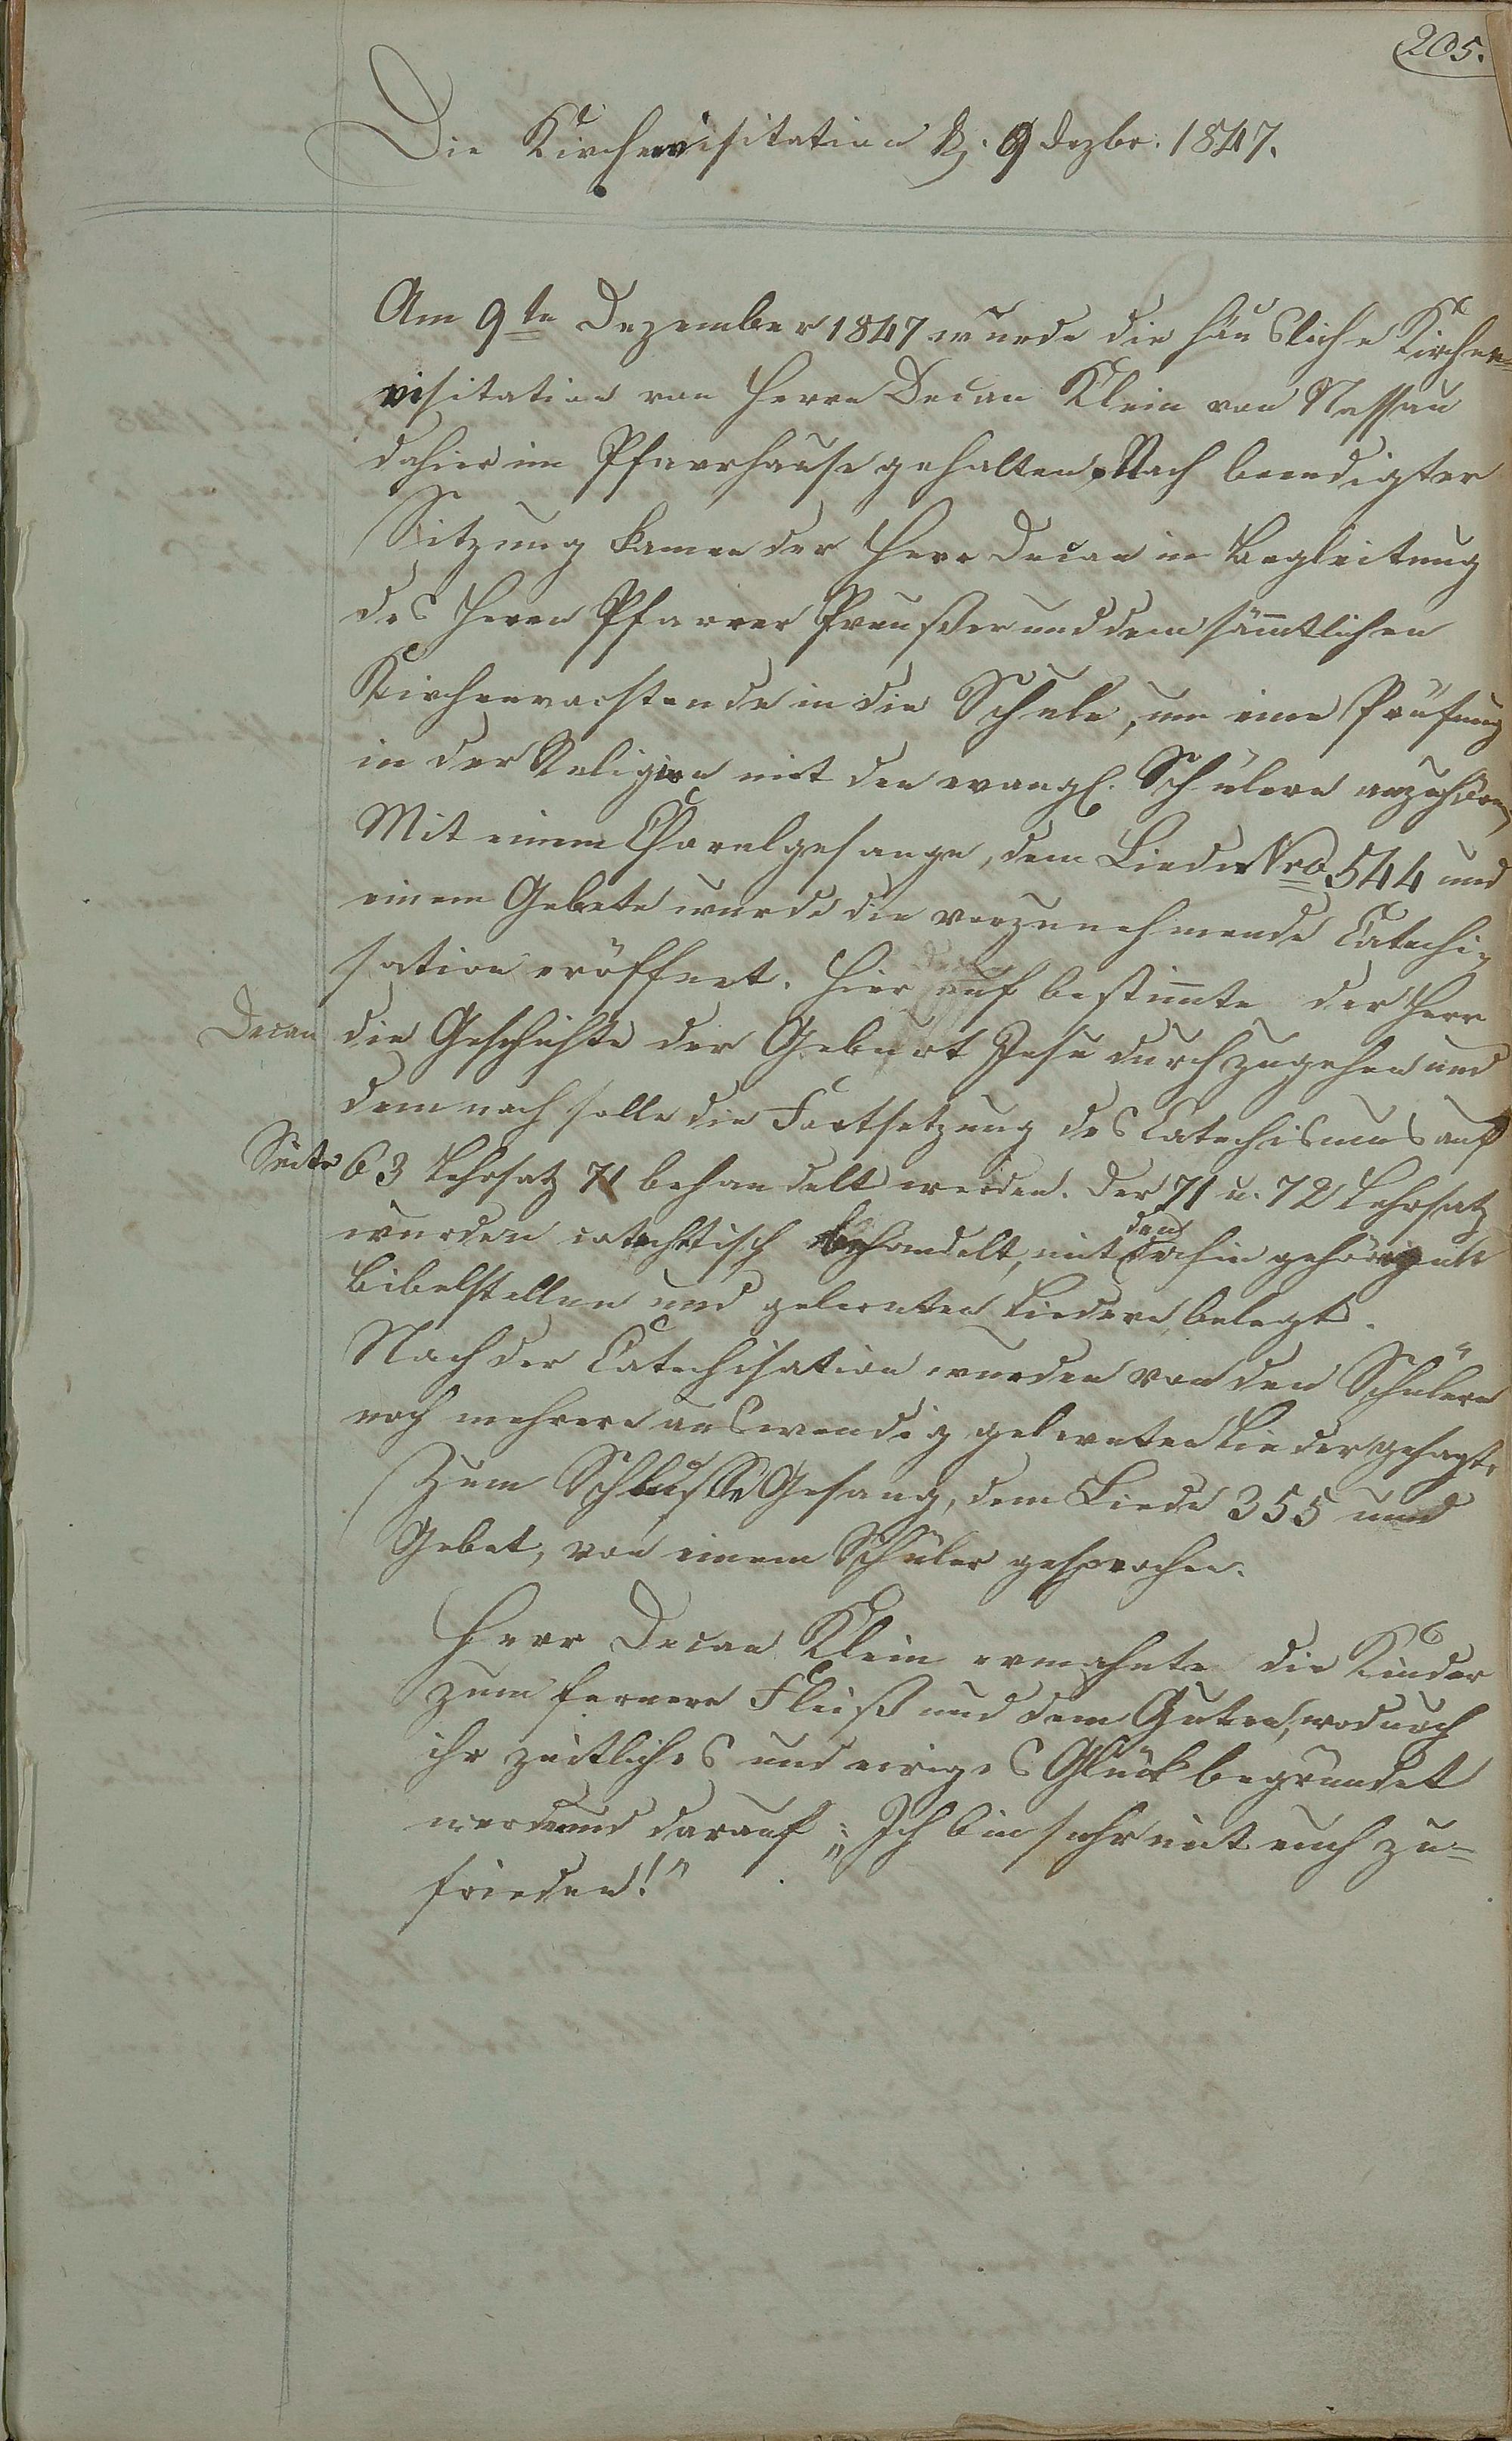 205.
Die Kirchenvisitation d. 9 Dezbr. 1847.
Am 9te Dezember 1847 wurde die häusliche Kirchen=
visitation von Herrn Decan Klein von Nassau
dahier im Pfarrhause gehalten. Nach beendigter
Sitzung kamen der Herr Decan in Begleitung
des Herrn Pfarrer Preußer und dem sämtlichen
Kirchenvorstande in die Schule, um eine Prüfung
in der Religion mit den evangl. Schülern anzuhören,
Mit einem Choralgesange, dem Liede Nro 544 und
einem Gebete wurde die vorzunehmende Catechi-
sation eröffnet. Hierauf bestimte der Herr
Decan die Geschichte der Geburt Jesu durchzugehen und
demnach solle die Fortsetzung des Catechismus auf
Seite 63 Lehrsatz 71 behandelt werden. Der 71 u. 72 Lehrsatz
wurden catechetisch behandelt, mit den dahin gehörigen
Bibelstellen und gelernten Liedern belegt.
Nach der Catechisation wurden von den Schülern
noch mehrere auswendig gelernten Lieder gesagt.
Zum Schlusse Gesang, dem Liede 355 und
Gebet, von einem Schüler gesprochen.
Herr Decan Klein ermahnte die Kinder
zum fernern Fleiß und dem Guten, wodurch
ihr zeitliches und ewiges Glück begründet
werde und darauf: „Ich bin sehr mit euch zu=
frieden!"